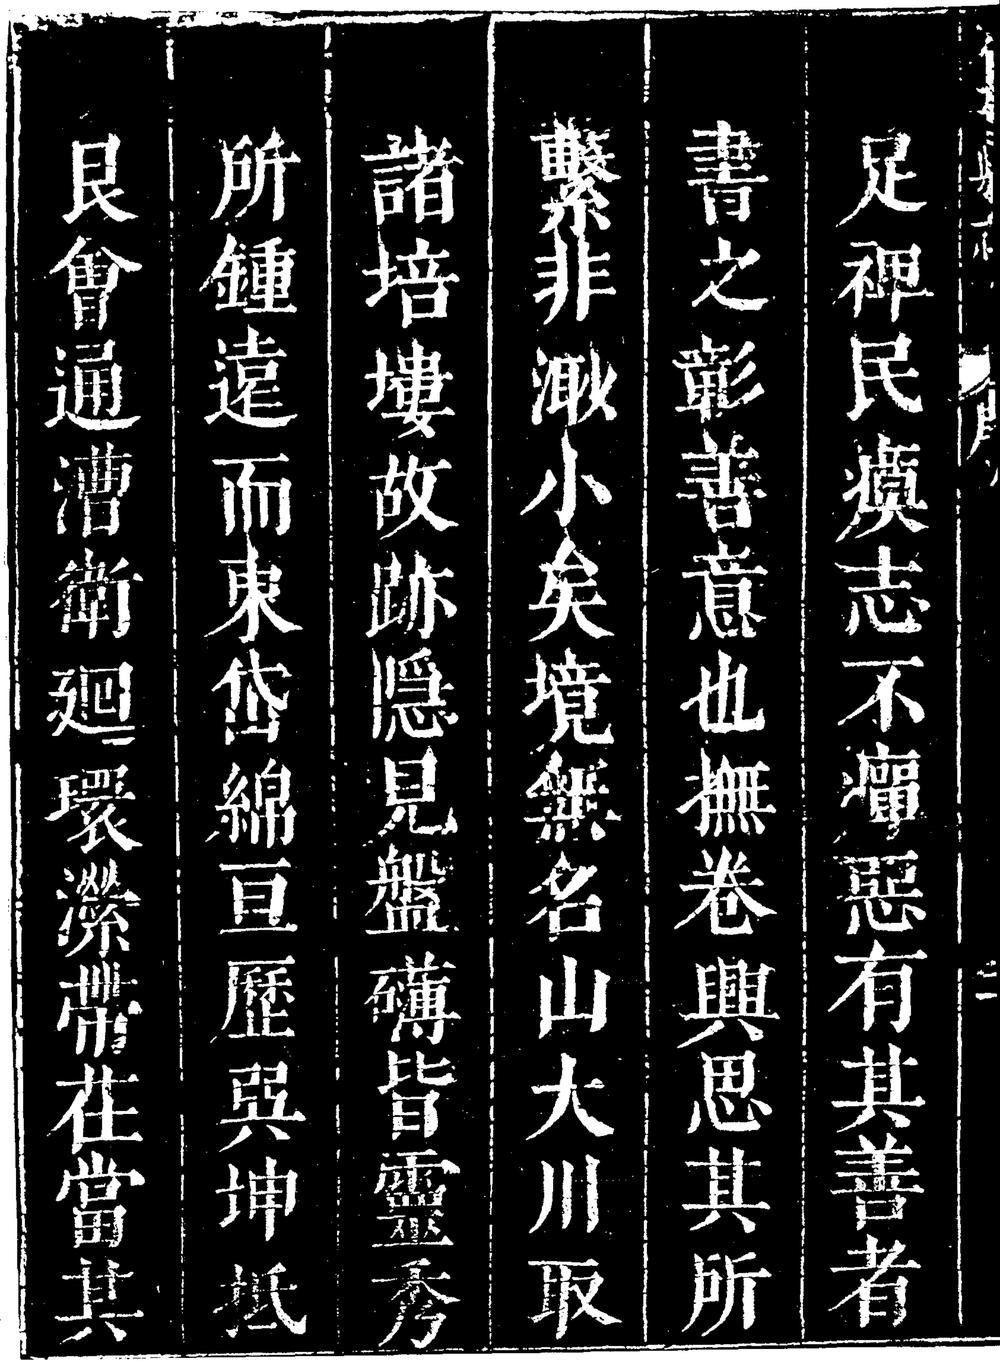 足裨民瘼志不癉惡有其善者
書之彰善意也撫卷興思其所
繫非渺小矣境無名山大川取
諸培塿故跡隱見盤礴皆靈秀
所鍾遠而東岱綿亘歷巽坤抵
艮會通漕衛廻環瀠帶茌當其